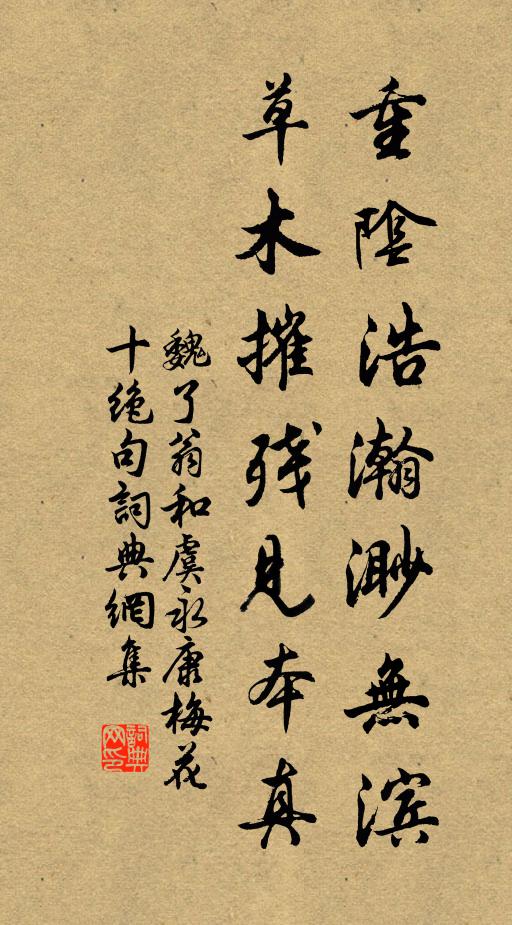 重陰浩瀚渺無滨
草木摧残見本真
魏了翁和虞永康梅花
十绝句詞典網集
詞典網印